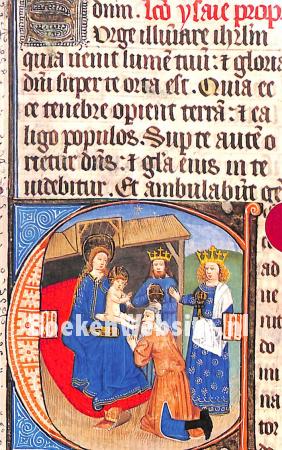 dnm. lcō ysaie prop
Surge illuiare ihrlm
quia uenit lumē tuū: ⁊ gloria
dni super te orta est. Quia ec
ce tenebre opient terrā: ⁊ ca
ligo populos. Sup te autē o
rietur dn̄s: ⁊ gl̄a eius in te
uidebitur. Et ambulabūt ge
ad
ue
ni
et
do
mi
na
tor
BoekenWebsite.nl